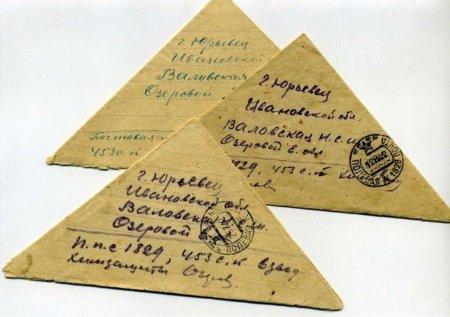 г. Юрьевец
Ивановской
Валовская
Озеровой
Почтовая
453 с.п
г. Юрьевец
Ивановской обл.
Валовская
Озеровой
1829, 453 с.п
ПОЛЕВАЯ
г. Юрьевец
Ивановской обл.
Валовская
Озеровой
П.п.с 1829, 453 с.п взвод
Химзащиты
ПОЛЕВАЯ